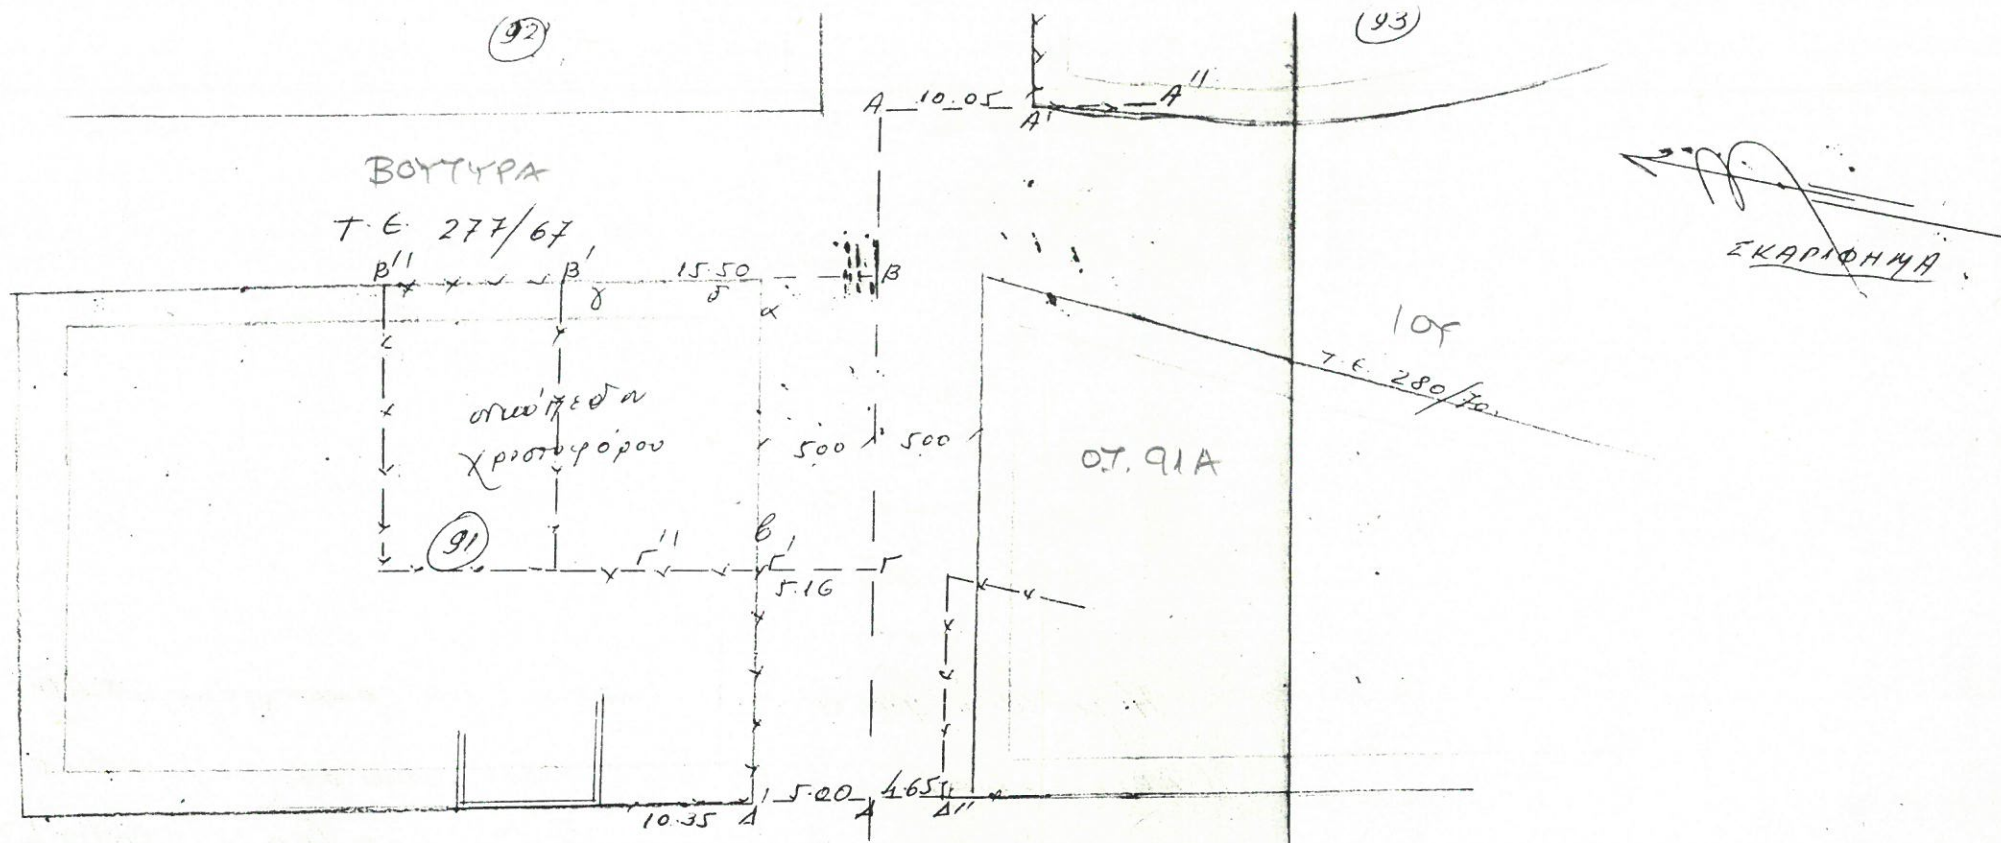 92
93
A 10.05 A' A''
ΒΟΥΤΥΡΑ
Τ.Ε. 277/67
ΣΚΑΡΙΦΗΜΑ
Β'' Β' 15.50 Β
γ δ α
Τ.Ε. 280/70
χριστοφόρου
5.00 5.00
Ο.Τ. 91Α
91
β
Γ'' Γ' Γ
5.16
5.00 4.65
10.35 Δ' Δ Δ''